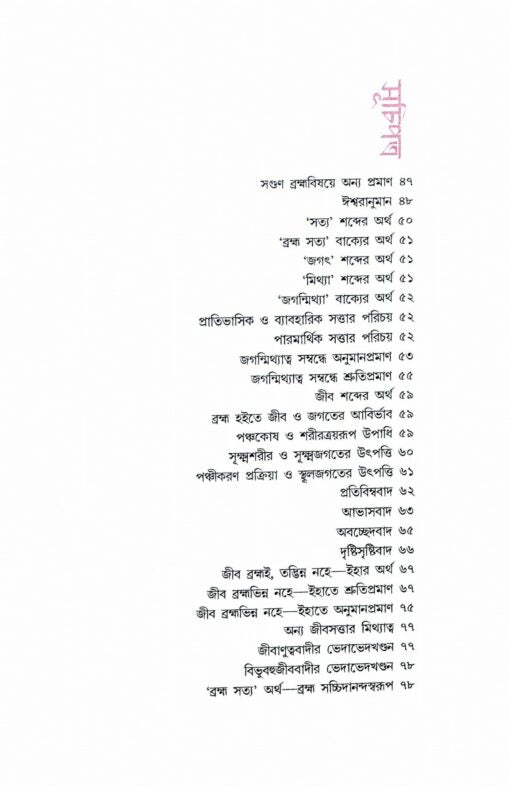 সূচিপত্র
সগুণ ব্রহ্মবিষয়ে অন্য প্রমাণ ৪৭
ঈশ্বরানুমান ৪৮
‘সত্য’ শব্দের অর্থ ৫০
‘ব্রহ্ম সত্য’ বাক্যের অর্থ ৫১
‘জগৎ’ শব্দের অর্থ ৫১
‘মিথ্যা’ শব্দের অর্থ ৫১
‘জগন্মিথ্যা’ বাক্যের অর্থ ৫২
প্রাতিভাসিক ও ব্যাবহারিক সত্তার পরিচয় ৫২
পারমার্থিক সত্তার পরিচয় ৫২
জগন্মিথ্যাত্ব সম্বন্ধে অনুমানপ্রমাণ ৫৩
জগন্মিথ্যাত্ব সম্বন্ধে শ্রুতিপ্রমাণ ৫৫
জীব শব্দের অর্থ ৫৯
ব্রহ্ম হইতে জীব ও জগতের আবির্ভাব ৫৯
পঞ্চকোষ ও শরীরত্রয়রূপ উপাধি ৫৯
সূক্ষ্মশরীর ও সূক্ষ্মজগতের উৎপত্তি ৬০
পঞ্চীকরণ প্রক্রিয়া ও স্থূলজগতের উৎপত্তি ৬১
প্রতিবিম্ববাদ ৬২
আভাসবাদ ৬৩
অবচ্ছেদবাদ ৬৫
দৃষ্টিসৃষ্টিবাদ ৬৬
জীব ব্রহ্মই, তদ্ভিন্ন নহে—ইহার অর্থ ৬৭
জীব ব্রহ্মভিন্ন নহে—ইহাতে শ্রুতিপ্রমাণ ৬৭
জীব ব্রহ্মভিন্ন নহে—ইহাতে অনুমানপ্রমাণ ৭৫
অন্য জীবসত্তার মিথ্যাত্ব ৭৭
জীবাণুত্ববাদীর ভেদাভেদখণ্ডন ৭৭
বিভুবহুজীববাদীর ভেদাভেদখণ্ডন ৭৮
‘ব্রহ্ম সত্য’ অর্থ—ব্রহ্ম সচ্চিদানন্দস্বরূপ ৭৮